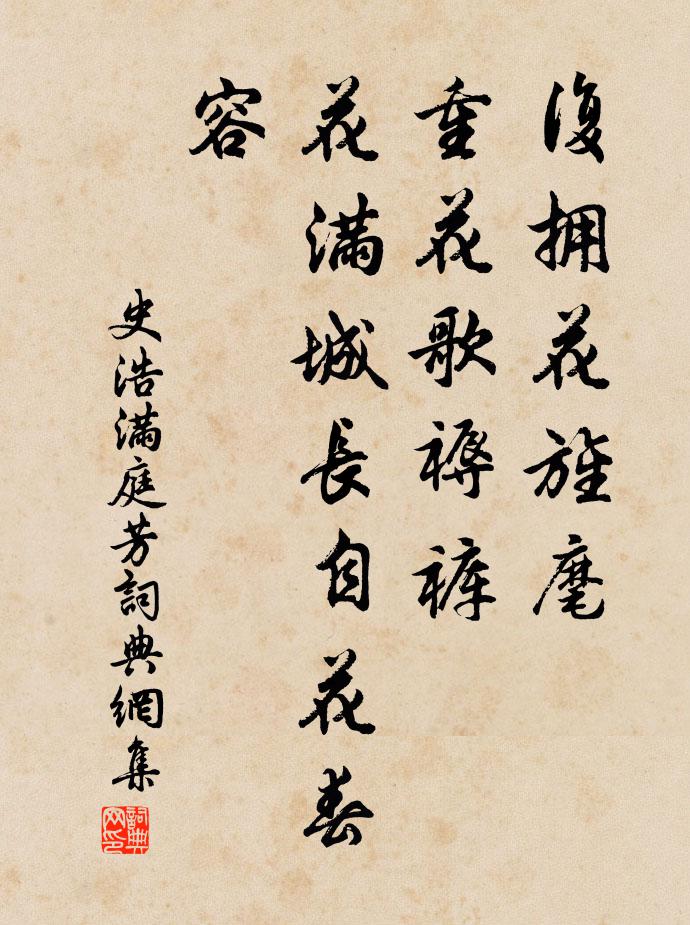 復拥花旌麾
重花歌襦裤
花滿城長自花春
容
史浩滿庭芳詞典網集
詞典
网印